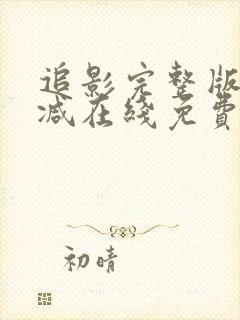 追影完整版
减在线免費
初晴